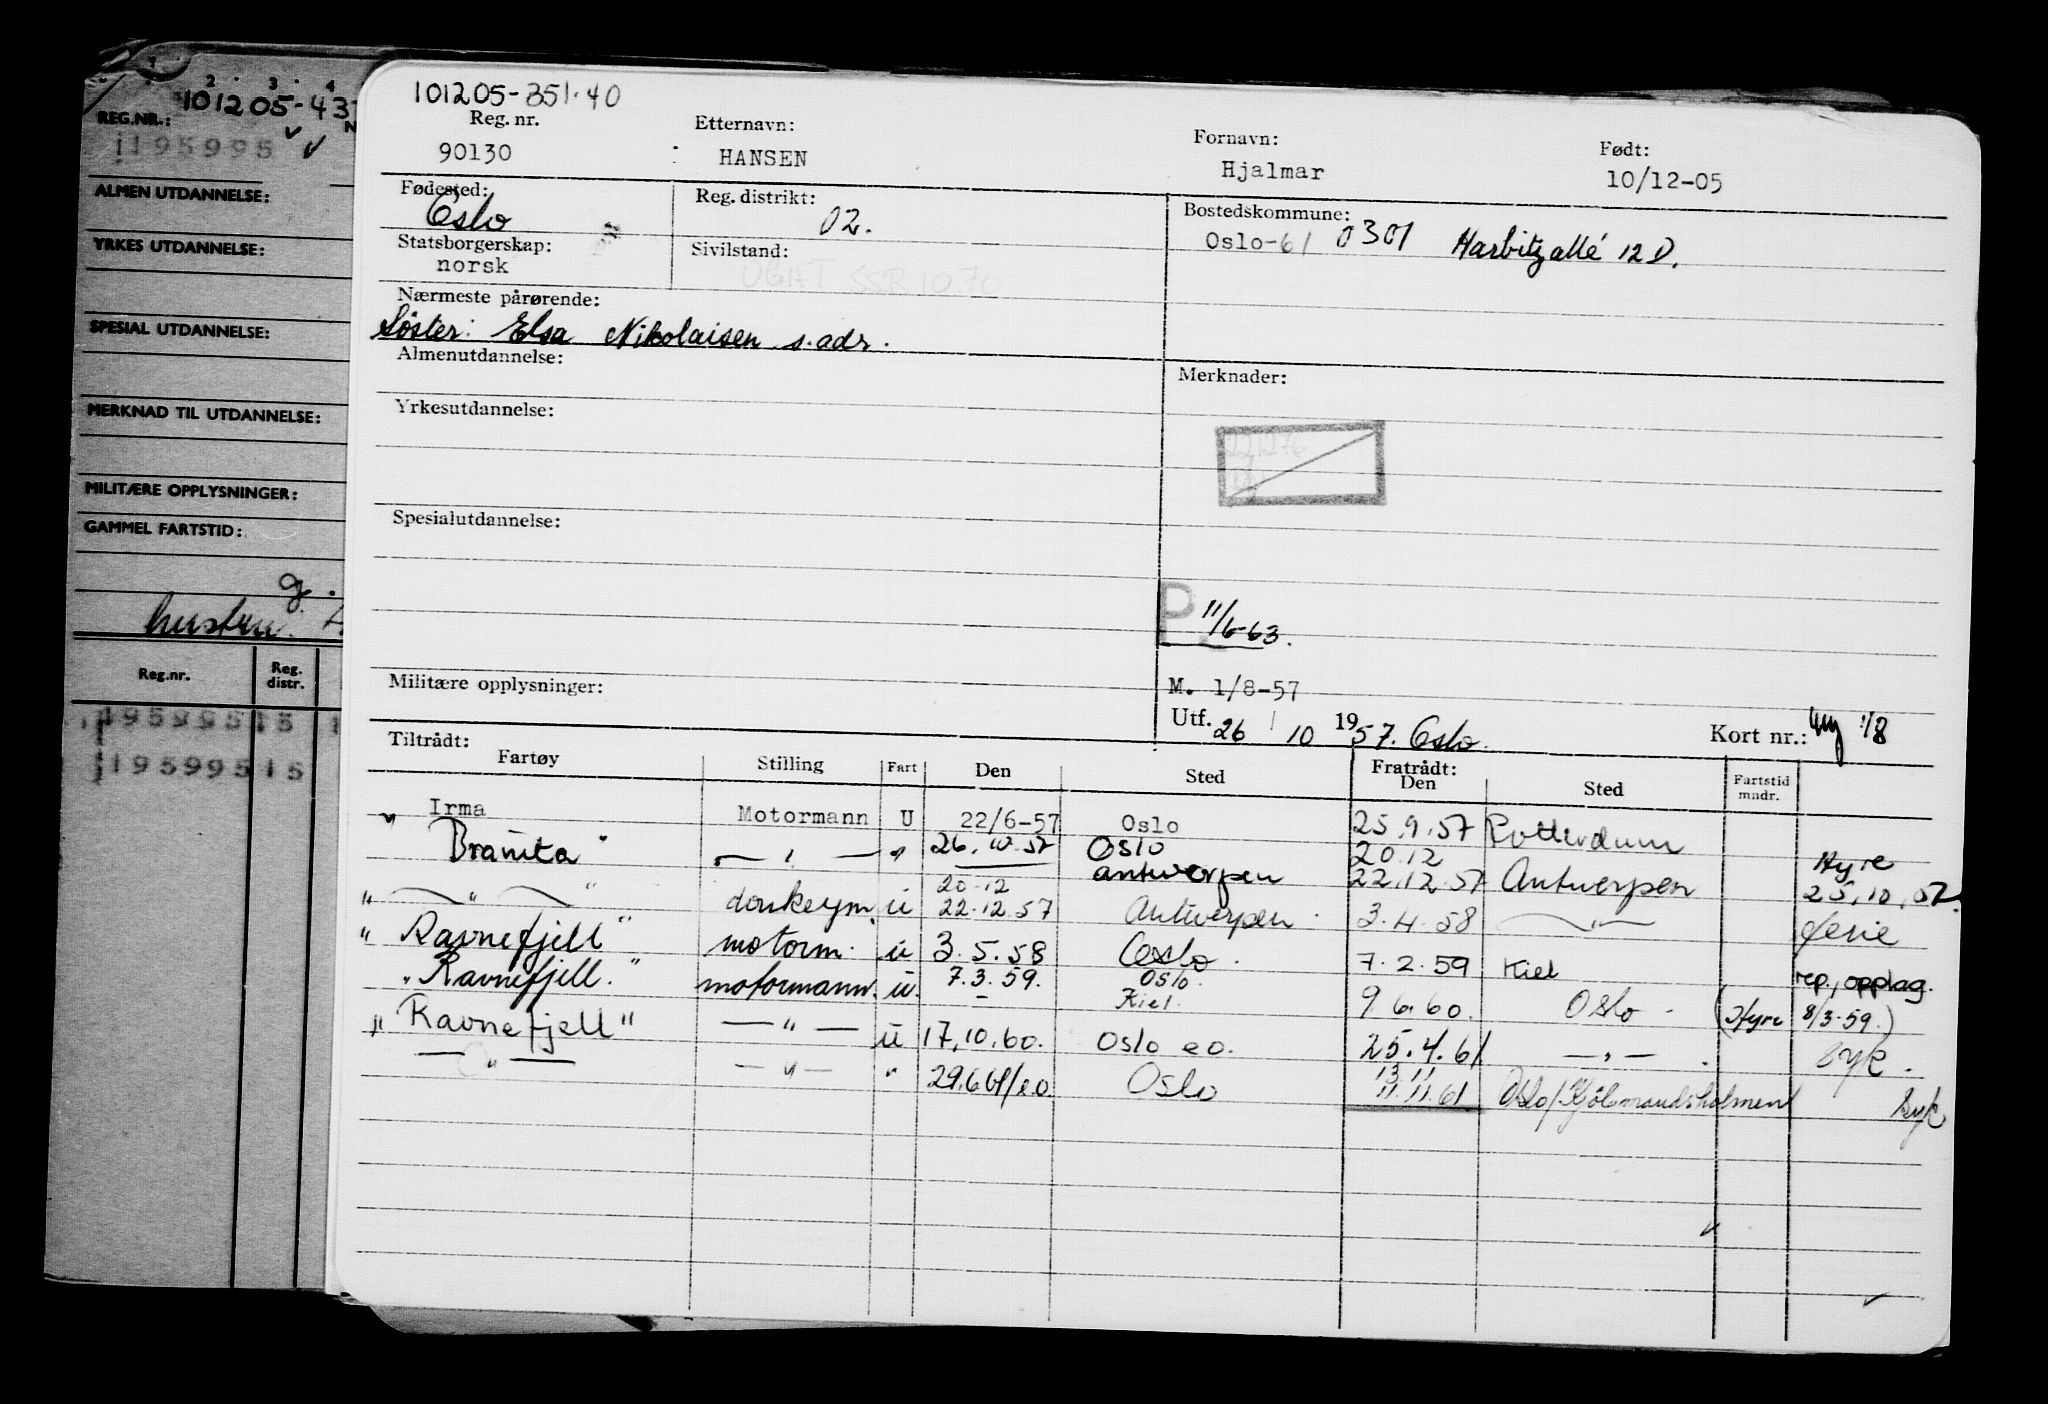 1 2 3 4
101205-43
REG.NR.:
195995
ALMEN UTDANNELSE:
YRKES UTDANNELSE:
SPESIAL UTDANNELSE:
MERKNAD TIL UTDANNELSE:
MILITÆRE OPPLYSNINGER:
GAMMEL FARTSTID:
g.
hustru:
Reg.nr. Reg. distr.
195995 15 1
195995 15
101205-351.40
Reg. nr. Etternavn: Fornavn: Født:
90130 HANSEN Hjalmar 10/12-05
Fødested: Reg. distrikt: Bostedskommune:
Oslo 02. Oslo-61 0301 Harbitzallé 12 D.
Statsborgerskap: Sivilstand:
norsk UGIFT SSB 1070
Nærmeste pårørende:
Søster: Elsa Nikolaisen s. adr.
Almenutdannelse: Merknader:
Yrkesutdannelse:
221276
Spesialutdannelse:
P. 11/6-63.
Militære opplysninger: M. 1/8-57
Utf. 26 / 10 1957. Oslo. Kort nr.: 1/8
Tiltrådt: Fratrådt:
Fartøy Stilling Fart Den Sted Den Sted Fartstid mndr.
Irma Motormann U 22/6-57 Oslo 25.9.57 Rotterdam
" Branita " — " — " 26.10.57 Oslo antwerpen 20.12 22.12.57 Antwerpen Hyre 25.10.57.
" — " — " donkeym. u 20-12 22.12.57 Antwerpen. 3.4.58 — " — ferie
" Ravnefjell " motorm. u 3.5.58 Oslo. 7.2.59 Kiel rep., opplag.
" Ravnefjell. " motormann. u. 7.3.59. Oslo. Kiel. 9.6.60. Oslo. (Hyre 8/3-59.)
" Ravnefjell " — " — u 17.10.60. Oslo eo. 25.4.61 — " — . syk.
— " — — " — " 29.6.61/e.o. Oslo 13.11 11.11.61 Oslo/Kjölmandsholmen syk